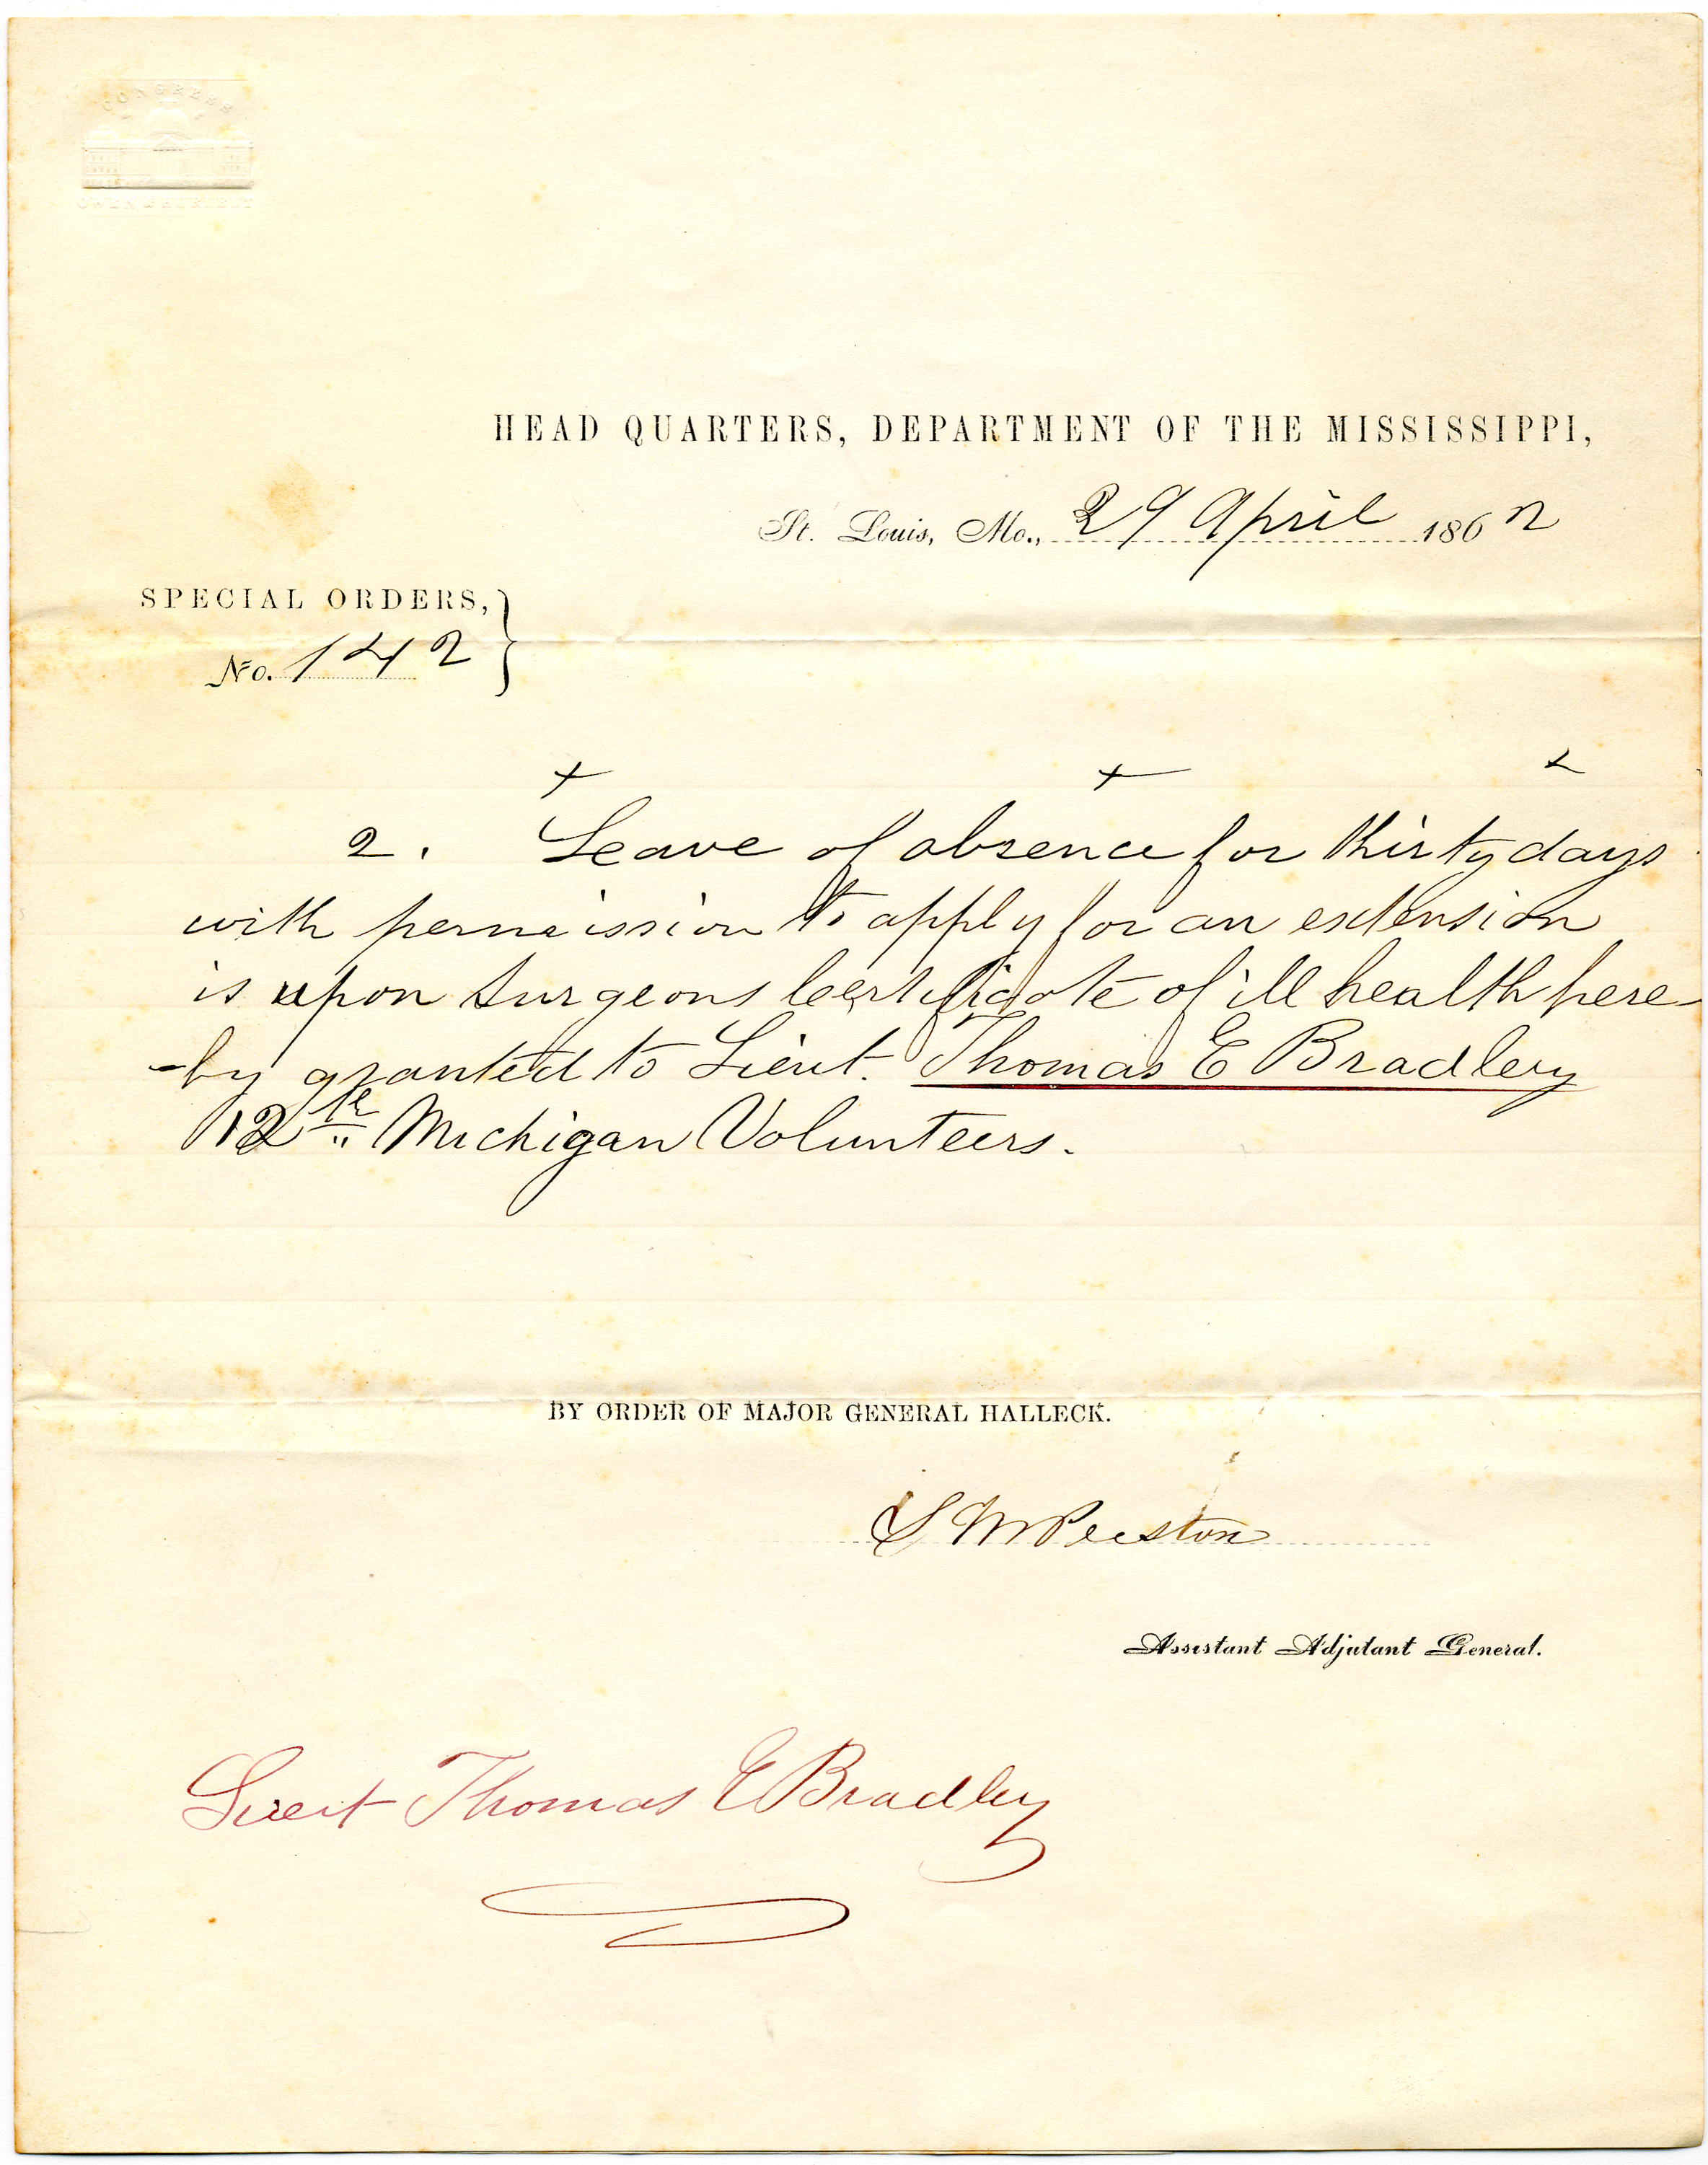 CONGRESS
OWEN & HURLBUT
HEAD QUARTERS, DEPARTMENT OF THE MISSISSIPPI,
St. Louis, Mo., 29 April 1862
SPECIAL ORDERS,
No. 142
+ + +
2. Leave of absence for thirty days
with permission to apply for an extension
is upon Surgeons Certificate of ill health here-
-by granted to Lieut. Thomas E Bradley
12th Michigan Volunteers.
BY ORDER OF MAJOR GENERAL HALLECK.
S M Preston
Assistant Adjutant General.
Lieut Thomas E Bradley